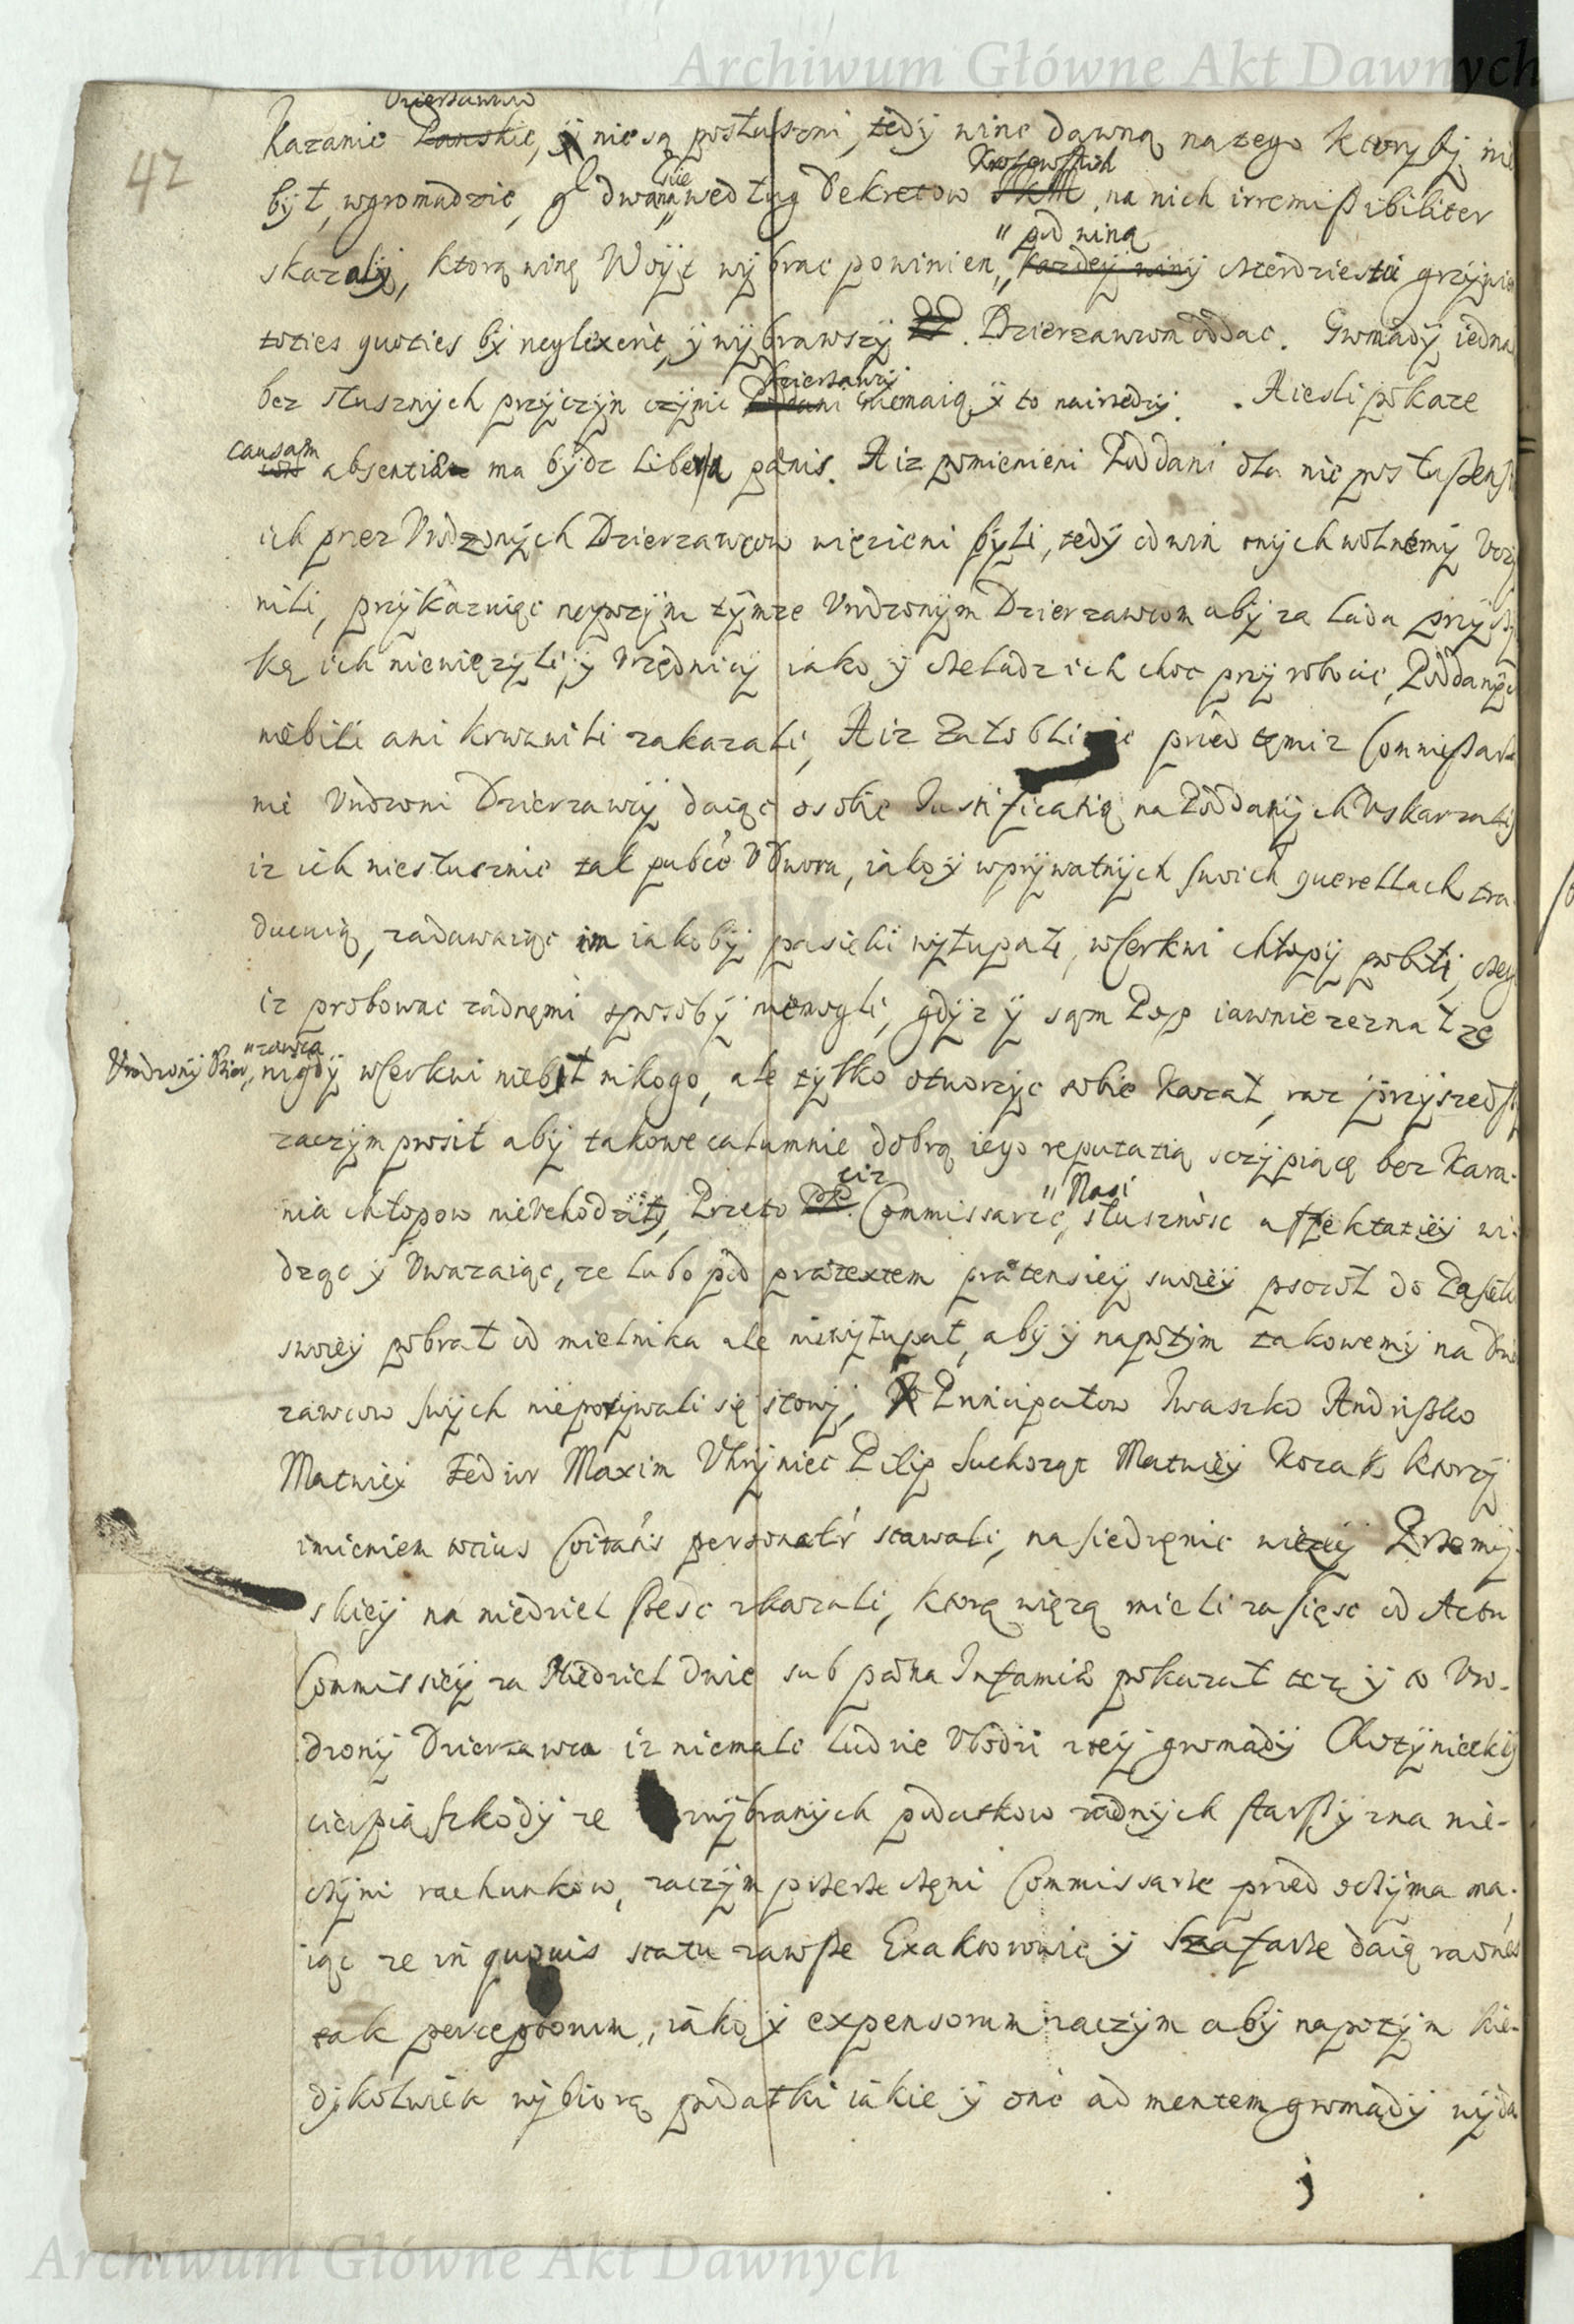 Archiwum Główne Akt Dawnych
42
Dzierzawcow
kazanie Panskie, y nie są posłuszni, tedy winę dawną na tego ktory by nie
Krolewskich
był w gromadzie, gr dwanascie według Dekretow JKM na nich irremissibiliter
" pod winą
skazaly, ktorą winę Woyt wybrac powinien, każdey winy czterdziestu grzywien
toties quoties by neglexerit, y wybrawszy Dzierzawcom oddac. Gromady iedna
Dzierzawcy
bez słusznych przyczyn czynic Poddani niemaią y to nairzedzy. A iesli pokaze
causam absentiae ma bydz libera paenis. A iz pomienieni Poddani dla nie posłuszens
ich przez Vrodzonych Dzierzawcow więzieni byli, tedy od win onych wolnemy vczy
nili, przykazuiąc tymze Vrodzonym Dzierzawcom aby za lada przycz
ką ich niewięzyli, y Vrzędnicy iako y czeladz ich choc przy robocie Poddanych
niebili ani krwawili zakazali, A iz przed temiz Commissarza
mi Vrodzoni Dzierzawcy daiąc o sobie Justificatią na Poddanych Vskarzaly
iz ich niesłusznie tak pub̃ce V Dworu, iako y w prywatnych swoich querellach tra
ducuią, zadawaiąc im iakoby pasieki wyłupali, w Cerkwi chłopy pobili, czeg
iz probowac zadnemi sposoby niemogli, gdyz y sąm Pop iawnie zeznał ze
Vrodzony Dzier"zawca nigdy w Cerkwi niebił nikogo, ale tylko otworzyc sobie kazał, raz przyszedszy
zaczym prosił aby takowe calumnie dobrą iego reputatią sczypiącę bez kara-
ciz " Nasi
nia chłopow nie vchodziły, Przeto Commissarze, słusznosc affektatiey wi-
dząc y Vwazaiąc, ze lubo pod praetextem praetensiey swoiey psczoł do Pasieki
swoiey pobrał od mielnika ale niewyłupał, aby y napotym takowemi na Dzie
rzawcow swych nieporywali się słowy, Principałow Iwaszko Andruszko
Matwiey Fedior Maxim Vhryniec Pilip Suchorąz Matwiey Kozak ktorzy
imieniem totius Coitatis personalr stawali, na siedzęnie wiezy Przemy-
skiey na niedziel szesc skazali, ktorą wiezą mieli zasięsc od Actu
Commissiey za Niedziel dwie sub paena Infamiae pokazał tez y to Vro-
dzony Dzierzawca iz niemałe ludzie Vbodzy tey gromady Chotynieckiey
cierpią szkody ze wybranych podatkow zadnych starszyzna nie-
czyni rachunkow, zaczym pszerzeczeni Commissarze przed oczyma ma-
iąc ze in quovis statu zawsze Exaktorowie y Szafarze daią rationes
tak perceptorum, iako y expensorum zaczym aby napotym kie-
dykolwiek wybiorą podatki iakie y one ad mentem gromady wyda
Archiwum Główne Akt Dawnych